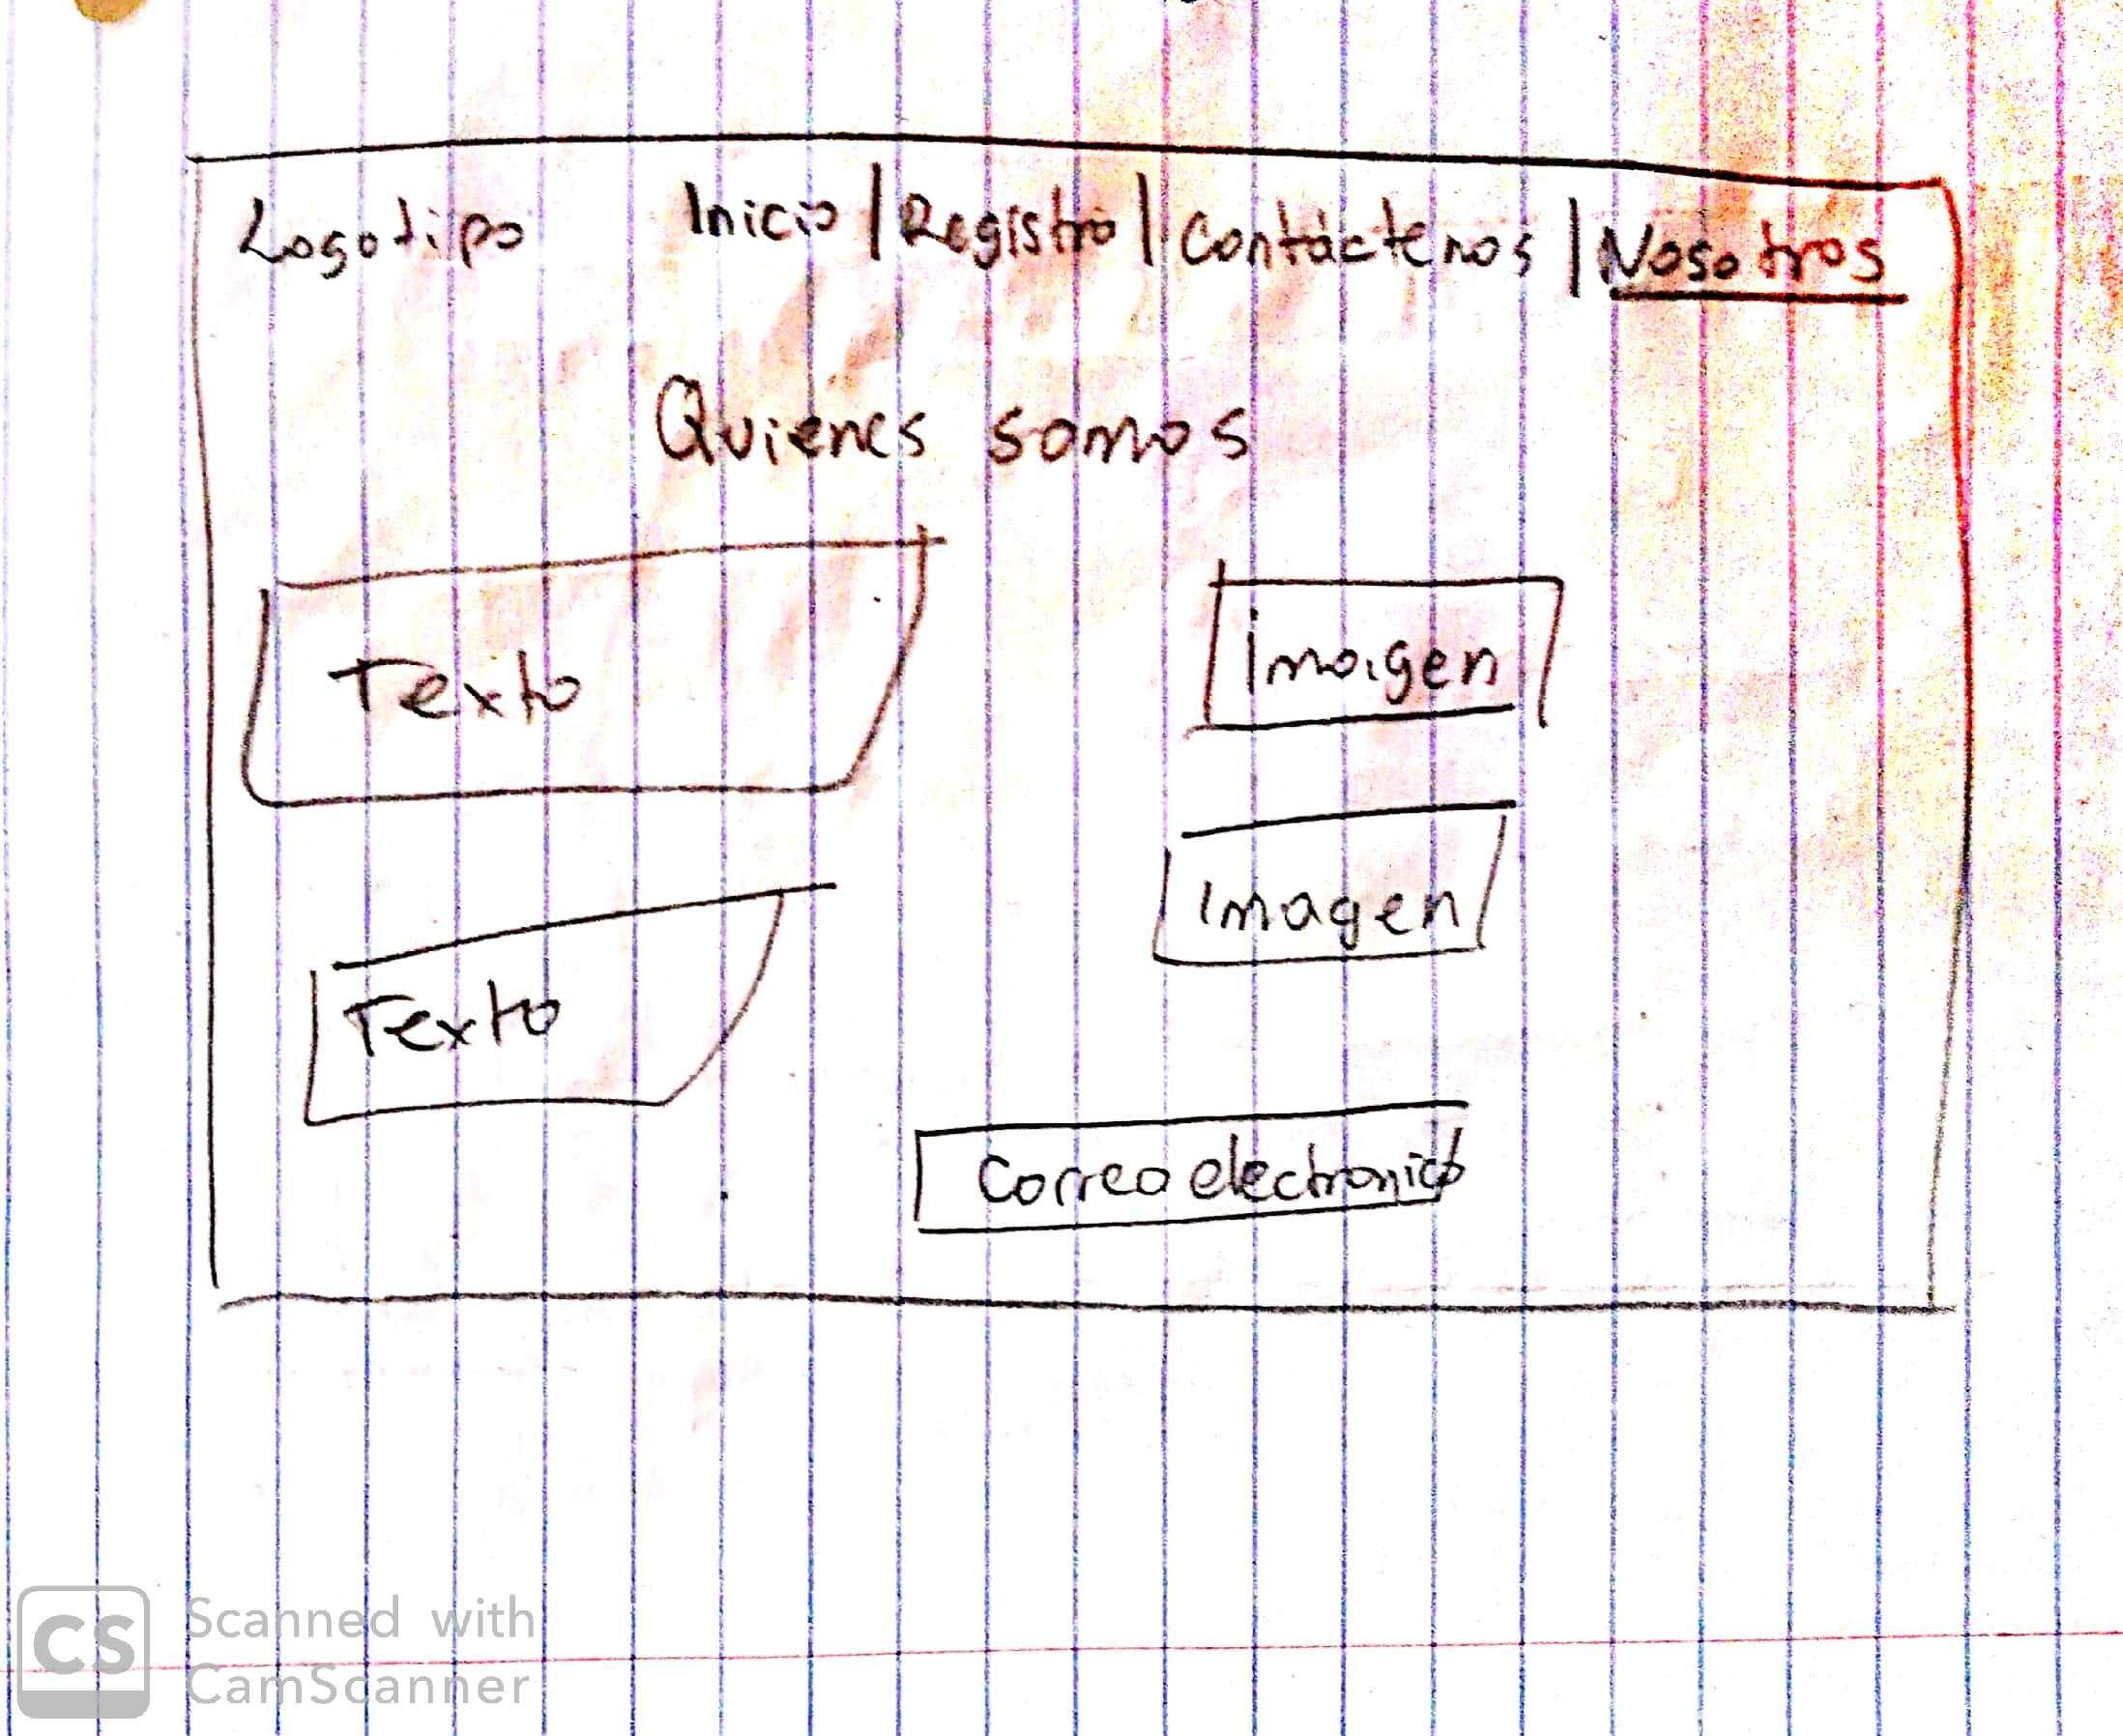 Logotipo Inicio | Registro | Contáctenos | Nosotros
Quienes somos
Texto
Imagen
Imagen
Texto
Correo electronico
CS Scanned with
CamScanner